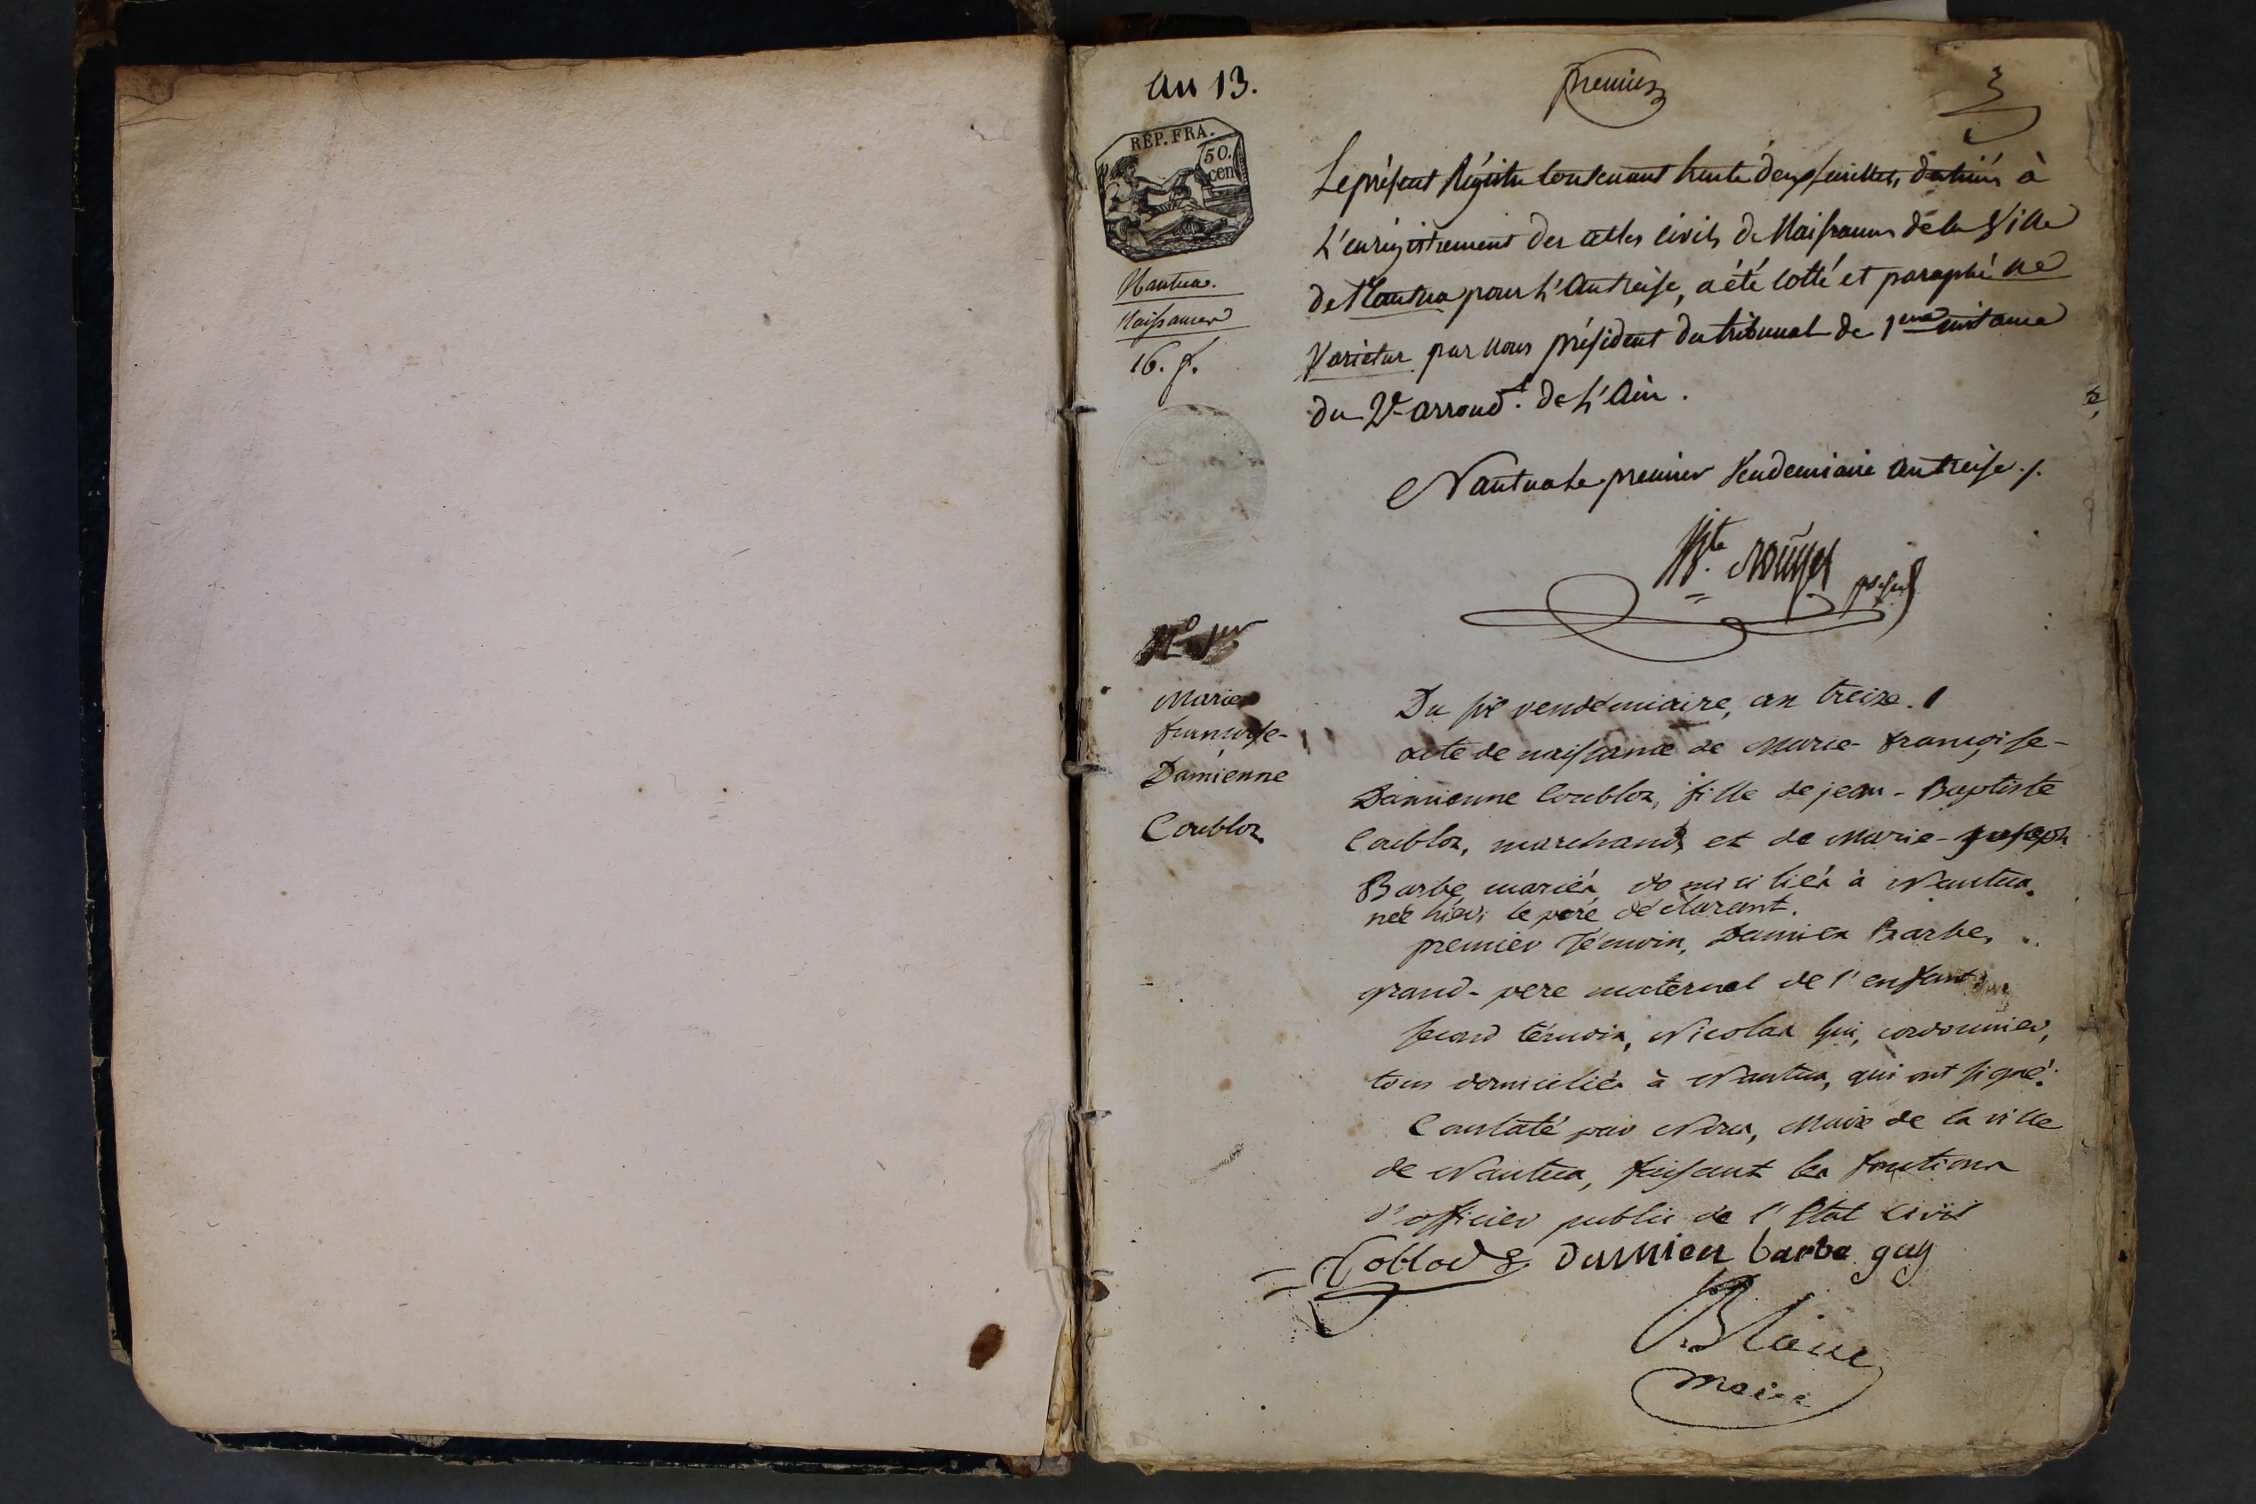 an 13.
premier
RÉP. FRA.
50.
cen
Nantua.
Naissances
16. f.
Le présent Régistre contenant trente deux feuillets, destinés à
L'enrégistrement des actes civils de Naissances de la Ville
de Nantua pour L'An treise, a été cotté et paraphé ne
Varietur par nous président du tribunal de 1ere instance
du 2e arrondt. de L'Ain.
Nantua le premier Vendemiaire an treise ./.
N° 1er
Marie
françoise-
Damienne
Coubloz
Du six vendémiaire, an treize.
acte de naissance de Marie-françoise-
Damienne Coubloz, fille de jean-Baptiste
Coubloz, marchand, et de Marie-joseph
Barbe mariés domiciliés à Nantua.
née hier, le père déclarant.
premier témoin, Damien Barbe,
grand-pere maternel de l'enfant
second témoin, Nicolas Gui, cordonnier,
tous domiciliés à Nantua, qui ont signé.
Constaté par Nous, Maire de la ville
de Nantua, faisant les fonctions
d'officier public de l'Etat Civil
damien barbe guy
maire